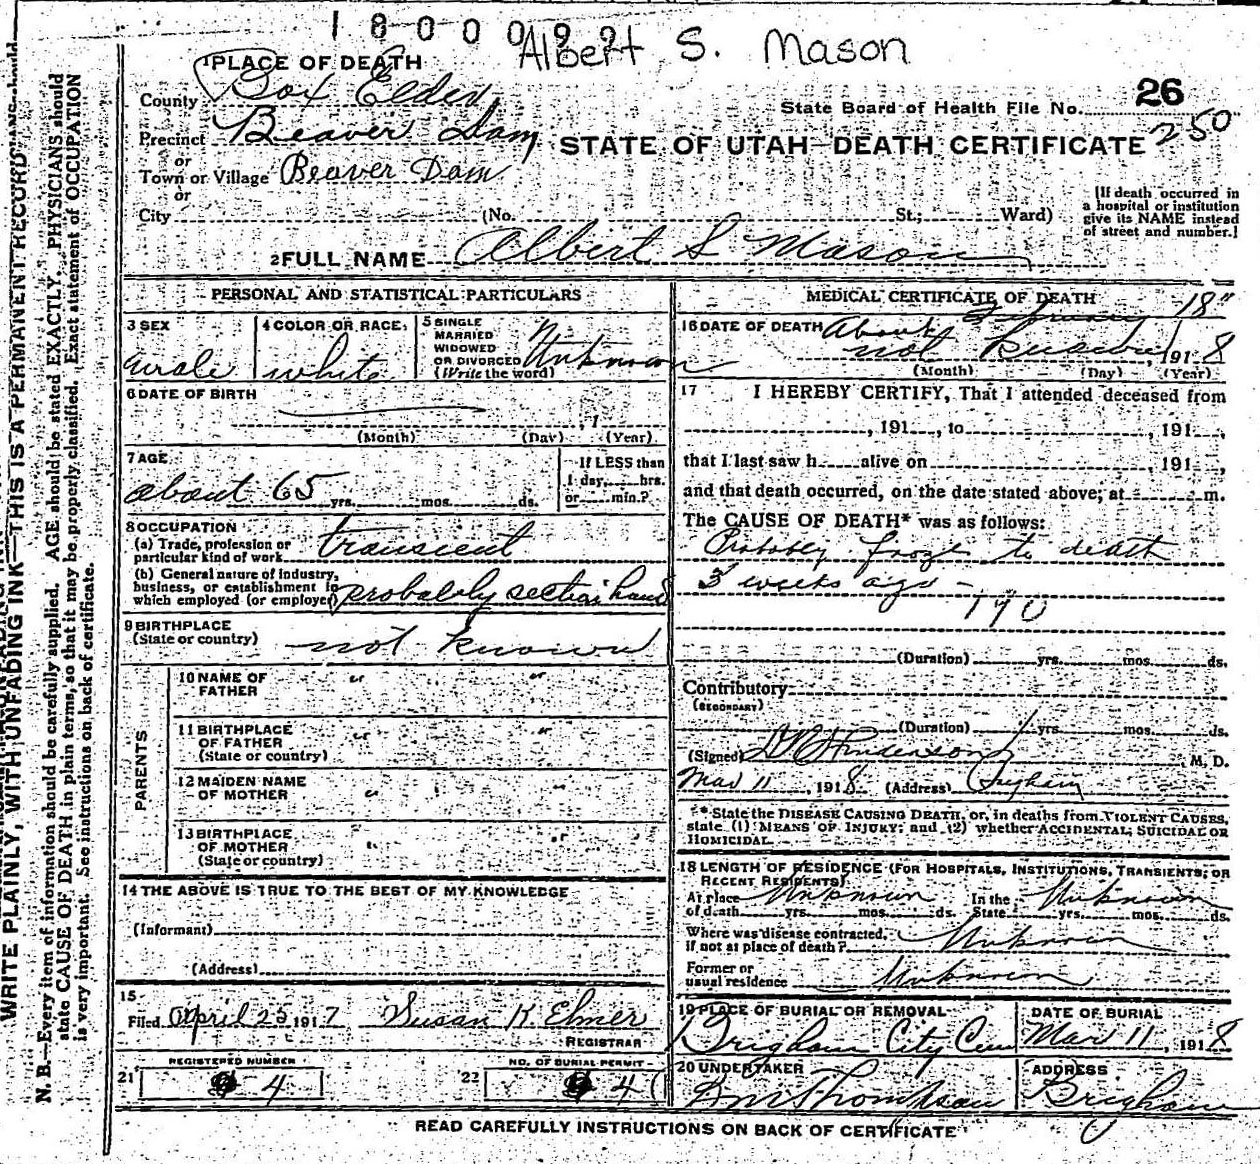 1800092
Albert S. Mason
1 PLACE OF DEATH
County Box Elder
State Board of Health File No. 26
250
Precinct Beaver Dam
or
STATE OF UTAH—DEATH CERTIFICATE
Town or Village Beaver Dam
or
City (No. St.; Ward)
[If death occurred in
a hospital or institution
give its NAME instead
of street and number.]
2 FULL NAME Albert S Mason
PERSONAL AND STATISTICAL PARTICULARS
3 SEX
male
4 COLOR OR RACE
white
5 SINGLE
MARRIED
WIDOWED
OR DIVORCED
(Write the word)
Unknown
6 DATE OF BIRTH
, 1
(Month) (Day) (Year)
7 AGE
about 65 yrs. mos. ds.
If LESS than
1 day, hrs.
or min.?
8 OCCUPATION
(a) Trade, profession or
particular kind of work transient
(b) General nature of industry,
business, or establishment in
which employed (or employer) probably section hand
9 BIRTHPLACE
(State or country) not known
PARENTS
10 NAME OF
FATHER " "
11 BIRTHPLACE
OF FATHER
(State or country) " "
12 MAIDEN NAME
OF MOTHER " "
13 BIRTHPLACE
OF MOTHER
(State or country) " "
14 THE ABOVE IS TRUE TO THE BEST OF MY KNOWLEDGE
(Informant)
(Address)
15
Filed April 25 1917 Susan K Elmer
REGISTRAR
REGISTERED NUMBER
21 4
NO. OF BURIAL PERMIT
22 4
MEDICAL CERTIFICATE OF DEATH
February 18"
16 DATE OF DEATH About
not known 1918
(Month) (Day) (Year)
17 I HEREBY CERTIFY, That I attended deceased from
, 191 , to , 191 ,
that I last saw h alive on , 191 ,
and that death occurred, on the date stated above, at m.
The CAUSE OF DEATH* was as follows:
Probably froze to death
3 weeks ago -
190
(Duration) yrs. mos. ds.
Contributory
(SECONDARY)
(Duration) yrs. mos. ds.
(Signed) Henderson, M. D.
Mar 11, 1918 (Address) Brigham
* State the DISEASE CAUSING DEATH, or, in deaths from VIOLENT CAUSES,
state (1) MEANS OF INJURY; and (2) whether ACCIDENTAL, SUICIDAL OR
HOMICIDAL.
18 LENGTH OF RESIDENCE (FOR HOSPITALS, INSTITUTIONS, TRANSIENTS, OR
RECENT RESIDENTS)
At place
of death Unknown yrs. mos. ds. In the
State Unknown yrs. mos. ds.
Where was disease contracted,
if not at place of death? Unknown
Former or
usual residence Unknown
19 PLACE OF BURIAL OR REMOVAL
Brigham City Cem
DATE OF BURIAL
Mar 11, 1918
20 UNDERTAKER
Thompson
ADDRESS
Brigham
READ CAREFULLY INSTRUCTIONS ON BACK OF CERTIFICATE
WRITE PLAINLY, WITH UNFADING INK—THIS IS A PERMANENT RECORD
N. B.—Every item of information should be carefully supplied. AGE should be stated EXACTLY. PHYSICIANS should
state CAUSE OF DEATH in plain terms, so that it may be properly classified. Exact statement of OCCUPATION
is very important. See instructions on back of certificate.